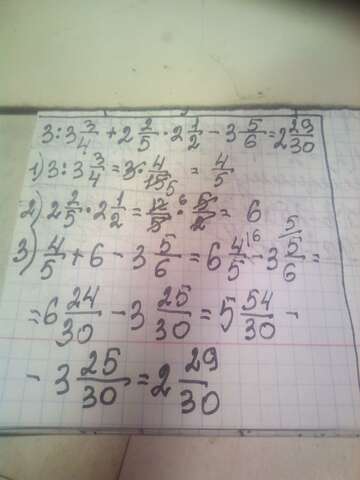 3:3 3/4 + 2 2/5 · 2 1/2 - 3 5/6 = 2 29/30
1) 3:3 3/4 = 3 · 4/15 5 = 4/5
2) 2 2/5 · 2 1/2 = 12/5 6 · 5/2 = 6
3) 4/5 + 6 - 3 5/6 = 6 4/5 6 - 3 5/6 5 =
= 6 24/30 - 3 25/30 = 5 54/30 -
- 3 25/30 = 2 29/30